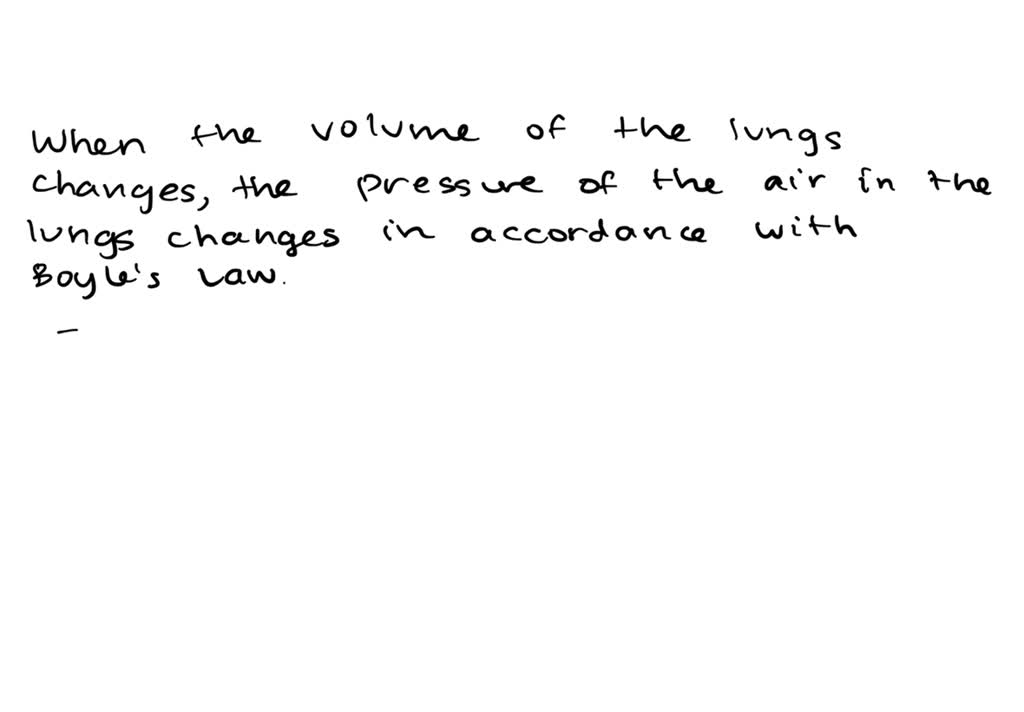 When the volume of the lungs
changes, the pressure of the air in the
lungs changes in accordance with
Boyle's Law.
–